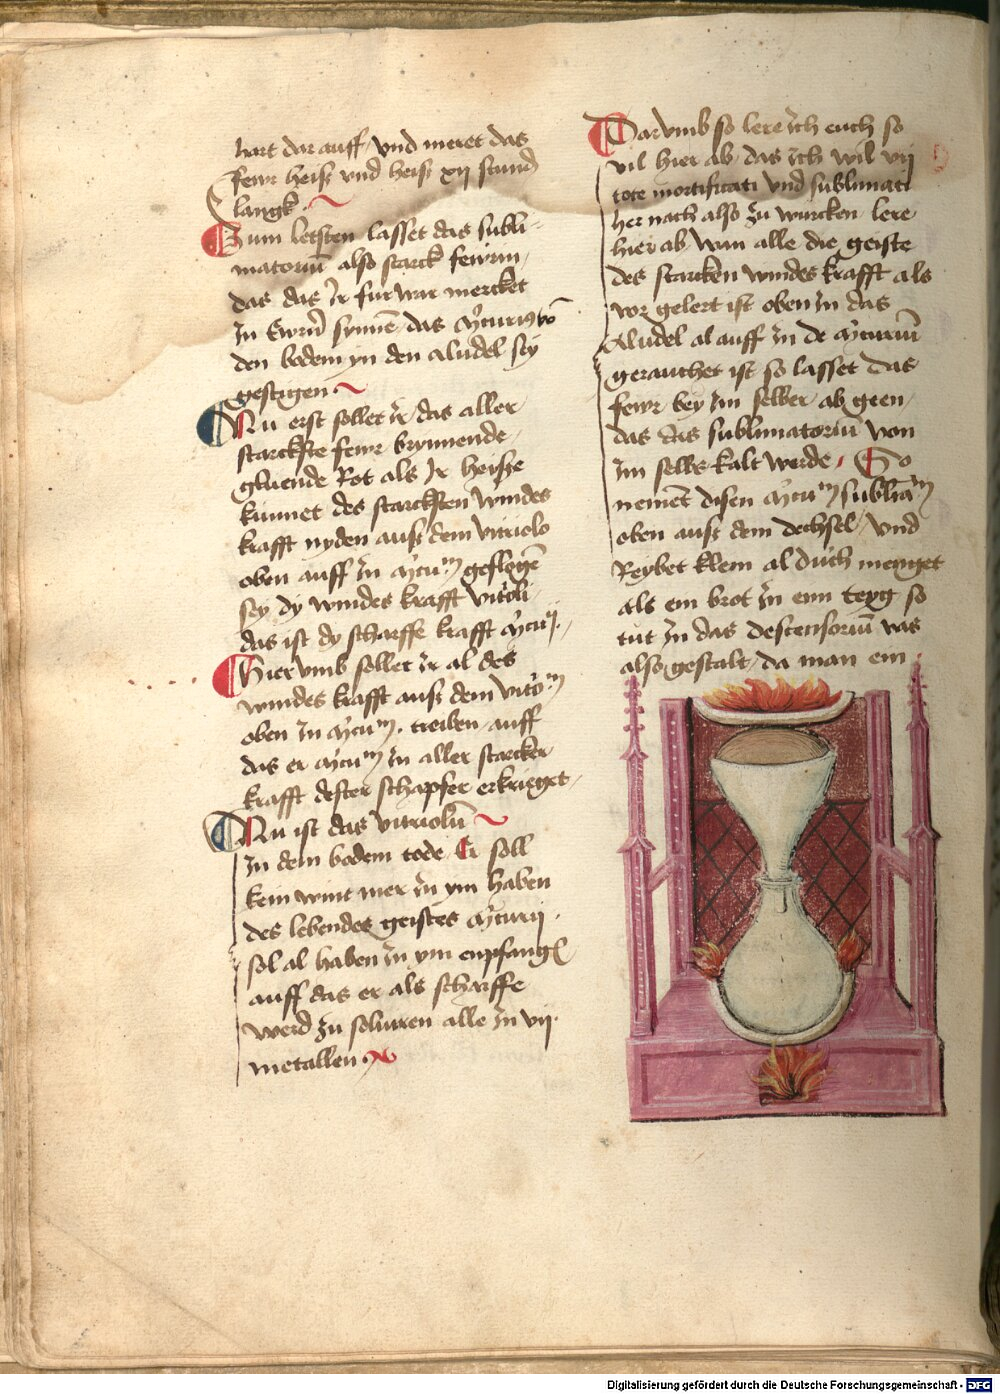 hart dar auff / vnd meret das
fewr heiß vnd heiß xij stund
langk
Zum letsten lasset das subli-
matoriū also starck fewrin /
das das Ir fur war mercket
In Ewrn̄ synnē das
den bodem yn den aludel sey
gestigen
Nu erst sollet ir das aller
starckste fewr brynnende
gluende Rot als Ir heisze
kunnet des starcksten windes
krafft nyden auß dem vitriolo
oben auff In geflogē
sey dy windes krafft vitrioli
das ist dy scharffe krafft
Hier vmb sollet ir al des
windes krafft auß dem
oben In treiben auff
das er In aller starcker
krafft dester schapfer erkrieget
Nu ist das vitriolū
In dem bodem tode Er soll
kein wint mer In ym haben
des lebendes geistes
sol al haben In ym enpfang
auff das er als scharffe
werd zu soluiren alle In vij
metallen
Darvmb so lere Ich euch so
vil hier ab das Ich wil vij
tote mortificati vnd sublimati
her nach also zu wurcken lere
hier ab wan alle die geiste
des starcken windes krafft als
vor gelert ist oben In das
Aludel al auff In de
gerauchet ist so lasset das
fewr bey Im selber ab geen /
das das sublimatoriū von
Im selbs kalt werde So
nemēt disen
oben auß dem dechsel / vnd
Reybet klein al duch menget
als ein brot In ein teyg so
tut In das descensoriū vas
also gestalt / da man ein
Digitalisierung gefördert durch die Deutsche Forschungsgemeinschaft - DFG